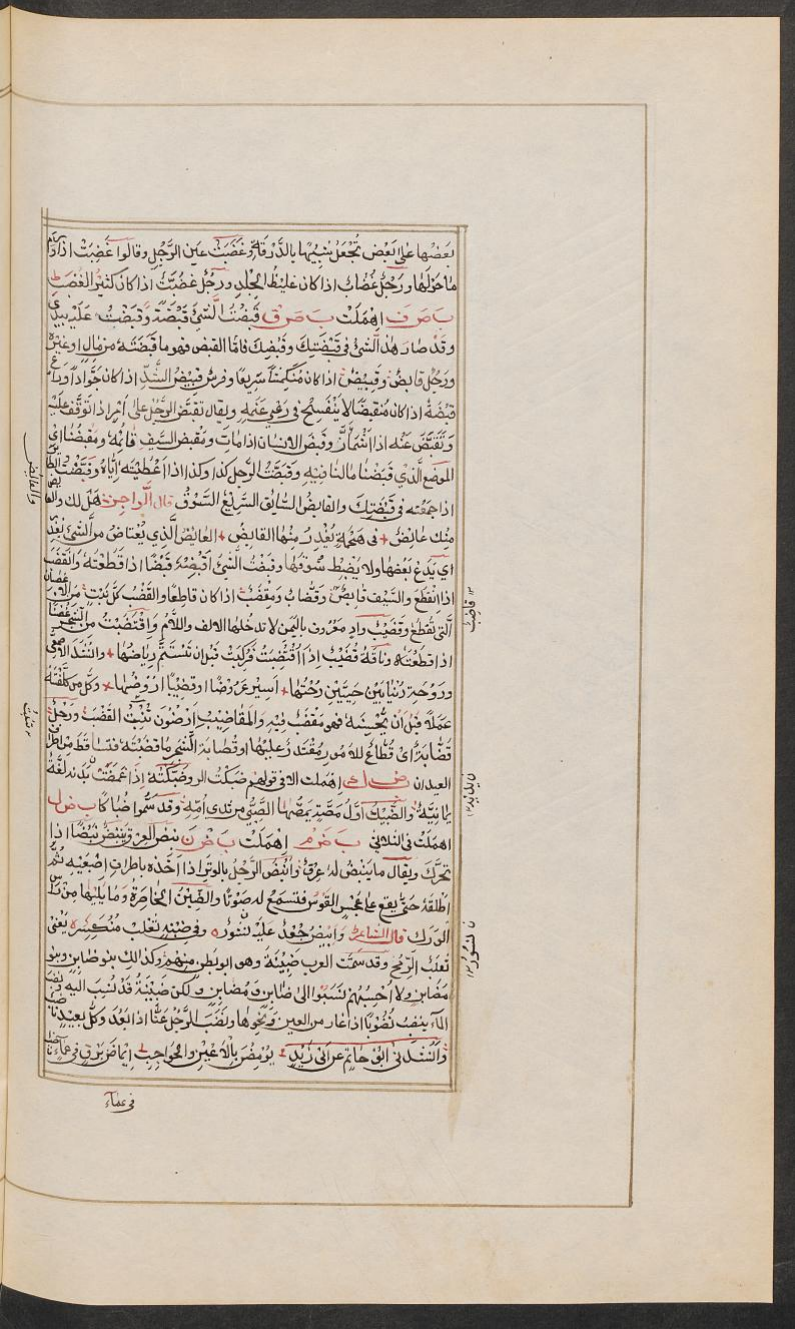 بعضها على بَعْض تجْعَلُ شبيهًا بالدَّرَقة وغَضَبَتْ عين الرَّجُلِ وقالوا غَضِبَتْ اذا وَرِم
ما حَوْلَهَا ورَجُلٌ غُضَابٌ اذا كان غليظَ الجْلدِ ورجُلٌ غضُبَّةٌ اذا كان كثيرَ الغضَب
ب ض ف اهْمِلَتْ ب ض ق قَبَضْتُ الشئَ قَبْضَةً وَّقبَضْتُ عَليْه بيدى
وقد صار هٰذا الشئ فى قبْضَتِكَ وقبْضِكَ فامّا القبض فهو ما قبَضْتَهُ من مَالٍ اوغيره
ورَجُل قابضٌ وقبِيْضٌ اذا كان مُنكمشًا سَريعًا وفرسٌ قبيْضُ الشَّدِّ اذا كان جَوَادًا
قبُضَةٌ اذا كان مُنقبضًا لا يَنْفَسِحُ فى رَعْىِ غَنَمِهِ ويقال تقبَّض الرَّجُل على الأمر اذا توَقَّفَ عَليْه
وَتَقَبَّضَ عَنْه اذا اشْمَأَزَّ وقُبضَ الانسَان اذا مَات ومَقبض السَّيْفِ قائمه ومَقبِضُنا اى
الموضع الَّذى قَبَضْنا مالنا فيْهِ وقبَّضْتُ الرجل كذا وكذا اذا اعْطَيْتَه اِيَّاهُ وقبَضْتُ
اذا جَمَعْته فى قَبْضَتِكَ والقابِضُ السَّايق السَّريْعُ السَّوْقِ قال الرّاجزُ هَل لك والعا
منْك عَائِضُ فى هَجْمَةٍ يُغْدِرُ مِنْهَا القابضُ العايضُ الَّذى يعْتاضُ من الشئ بَعْد
اى يَدَعُ بَعْضهَا ولا يَضْبِط سَوْقَهَا وقضَبْتُ الشَّئ اقضِبُهُ قضْبًا اذا قطعْتَهُ وَانقَضَبَ
اذا انْقطَعَ والسَّيْف قاضبٌ وقَضَّابٌ ومِقضَبٌ اذا كان قاطِعًا والقَضْبُ كلُّ نَبْتٍ مِّن الاغصان
الَّتى تُقطَعُ وقَضيْبُ وادٍ معْرُوف باليَمَن لا تدخُلها الالف واللَّامُ وَاقْتَضَبْتُ من الشجر غُصْنًا
اذا قطعْتَهُ وناقةٌ قَضيْبٌ اِذَا اقتُضِبَتْ فَرُكِبَتْ قبْل ان تُسْتَتَمَّ ريَاضَتُهَا وانشَدَ الاصمعى
ورَوْحَةِ دُنْيَا بَيْنَ حَيَّيْنِ رُحْتُهَا اَسِيْر عَرُوضًا اوقضيْبًا اَرُوْضُهَا وكل من كلّفْتَهُ
عَمَلًا قبْل اَن يُّحْسِنَهُ فهو مُقْتَضَبٌ فيْهِ والمَقاضِيْب اَرَضُوْن تُنْبِتُ القَضْبَ ورَجُلٌ
قَضَّابَةٌ اى قُطَّاعٌ للأمور مُقْتَدِرٌ عليْها وقُضابَة الشَّجَرِ مَا قضَبْتَهُ فتسَاقَطَ مِن اطراف
العيدان ب ض ك اهملت الا فى قولهم ضَبَكْتُ الرجل وضَبَّكْتُهُ اِذَا غمَضْتَ يديه لُغَةٌ
يمانِيَّةٌ والضَّبيْكُ اوَّلُ مَصَّةٍ يَمصُّها الصَّبىُّ من ثدى اُمِّهِ وقد سَمُّوا ضُبَاكًا ب ض ل
اهملَتْ فى الثلاثى ب ض م اهْمِلَتْ ب ض ن نبَض العِرق يَنبِضُ نبْضًا اذا
تحَرَّكَ ويقال ما ينبضُ لهٗ عِرْقٌ وانبَضَ الرَّجُلُ بالوَتر اذا اَخَذه باطرافِ اِصْبَعَيْهِ ثُمَّ
اطْلقَهُ حَتّى يقَع على عَجْسِ القَوْس فتسمَعُ لهُ صَوْتًا والضِّبْنُ الخاصِرةُ وَمَا يليْهَا مِنْ رأس
الوَرِك قال الشاعر وَابيضُ جُعْدٌ عَليْهِ نُسُوْره وفى ضِبْنِهِ ثَعْلَبٌ مُّنكَسِرْ يَعْنى
ثَعلَبَ الرُّمْحِ وقد سَمَّت العرب ضَبِيْنَةَ وهى ابو بَطْنٍ منهُم وكذالك بنو ضابنٍ وبنو
مُضابِنٍ ولا اَحْسِبُهُم نُسِبُوْا الىٰ ضَابِنٍ وَّمُضابنٍ ولكن ضَبِيْنَةُ قد نُسِبَ اليه ونضَبَ
المآءُ ينضُبُ نُضُوْبًا اذا غار من العين ونَحْوِها ونَضَبَ الرَّجُلُ عَنَّا اذا بَعُدَ وكلُّ بعيدٍ ناضب
وَانْشدَنى ابوْ حَاتِمٍ عن ابى زَيْدٍ يُوْمِضْنَ بالاَعْيُنِ والحَوَاجِبِ اِيْمَاضَ بَرْقٍ فى عَمَآءٍ ناضب
فى عمآء
والقابض
قاضبٌ
ن يديه
ن نسُوْرُ